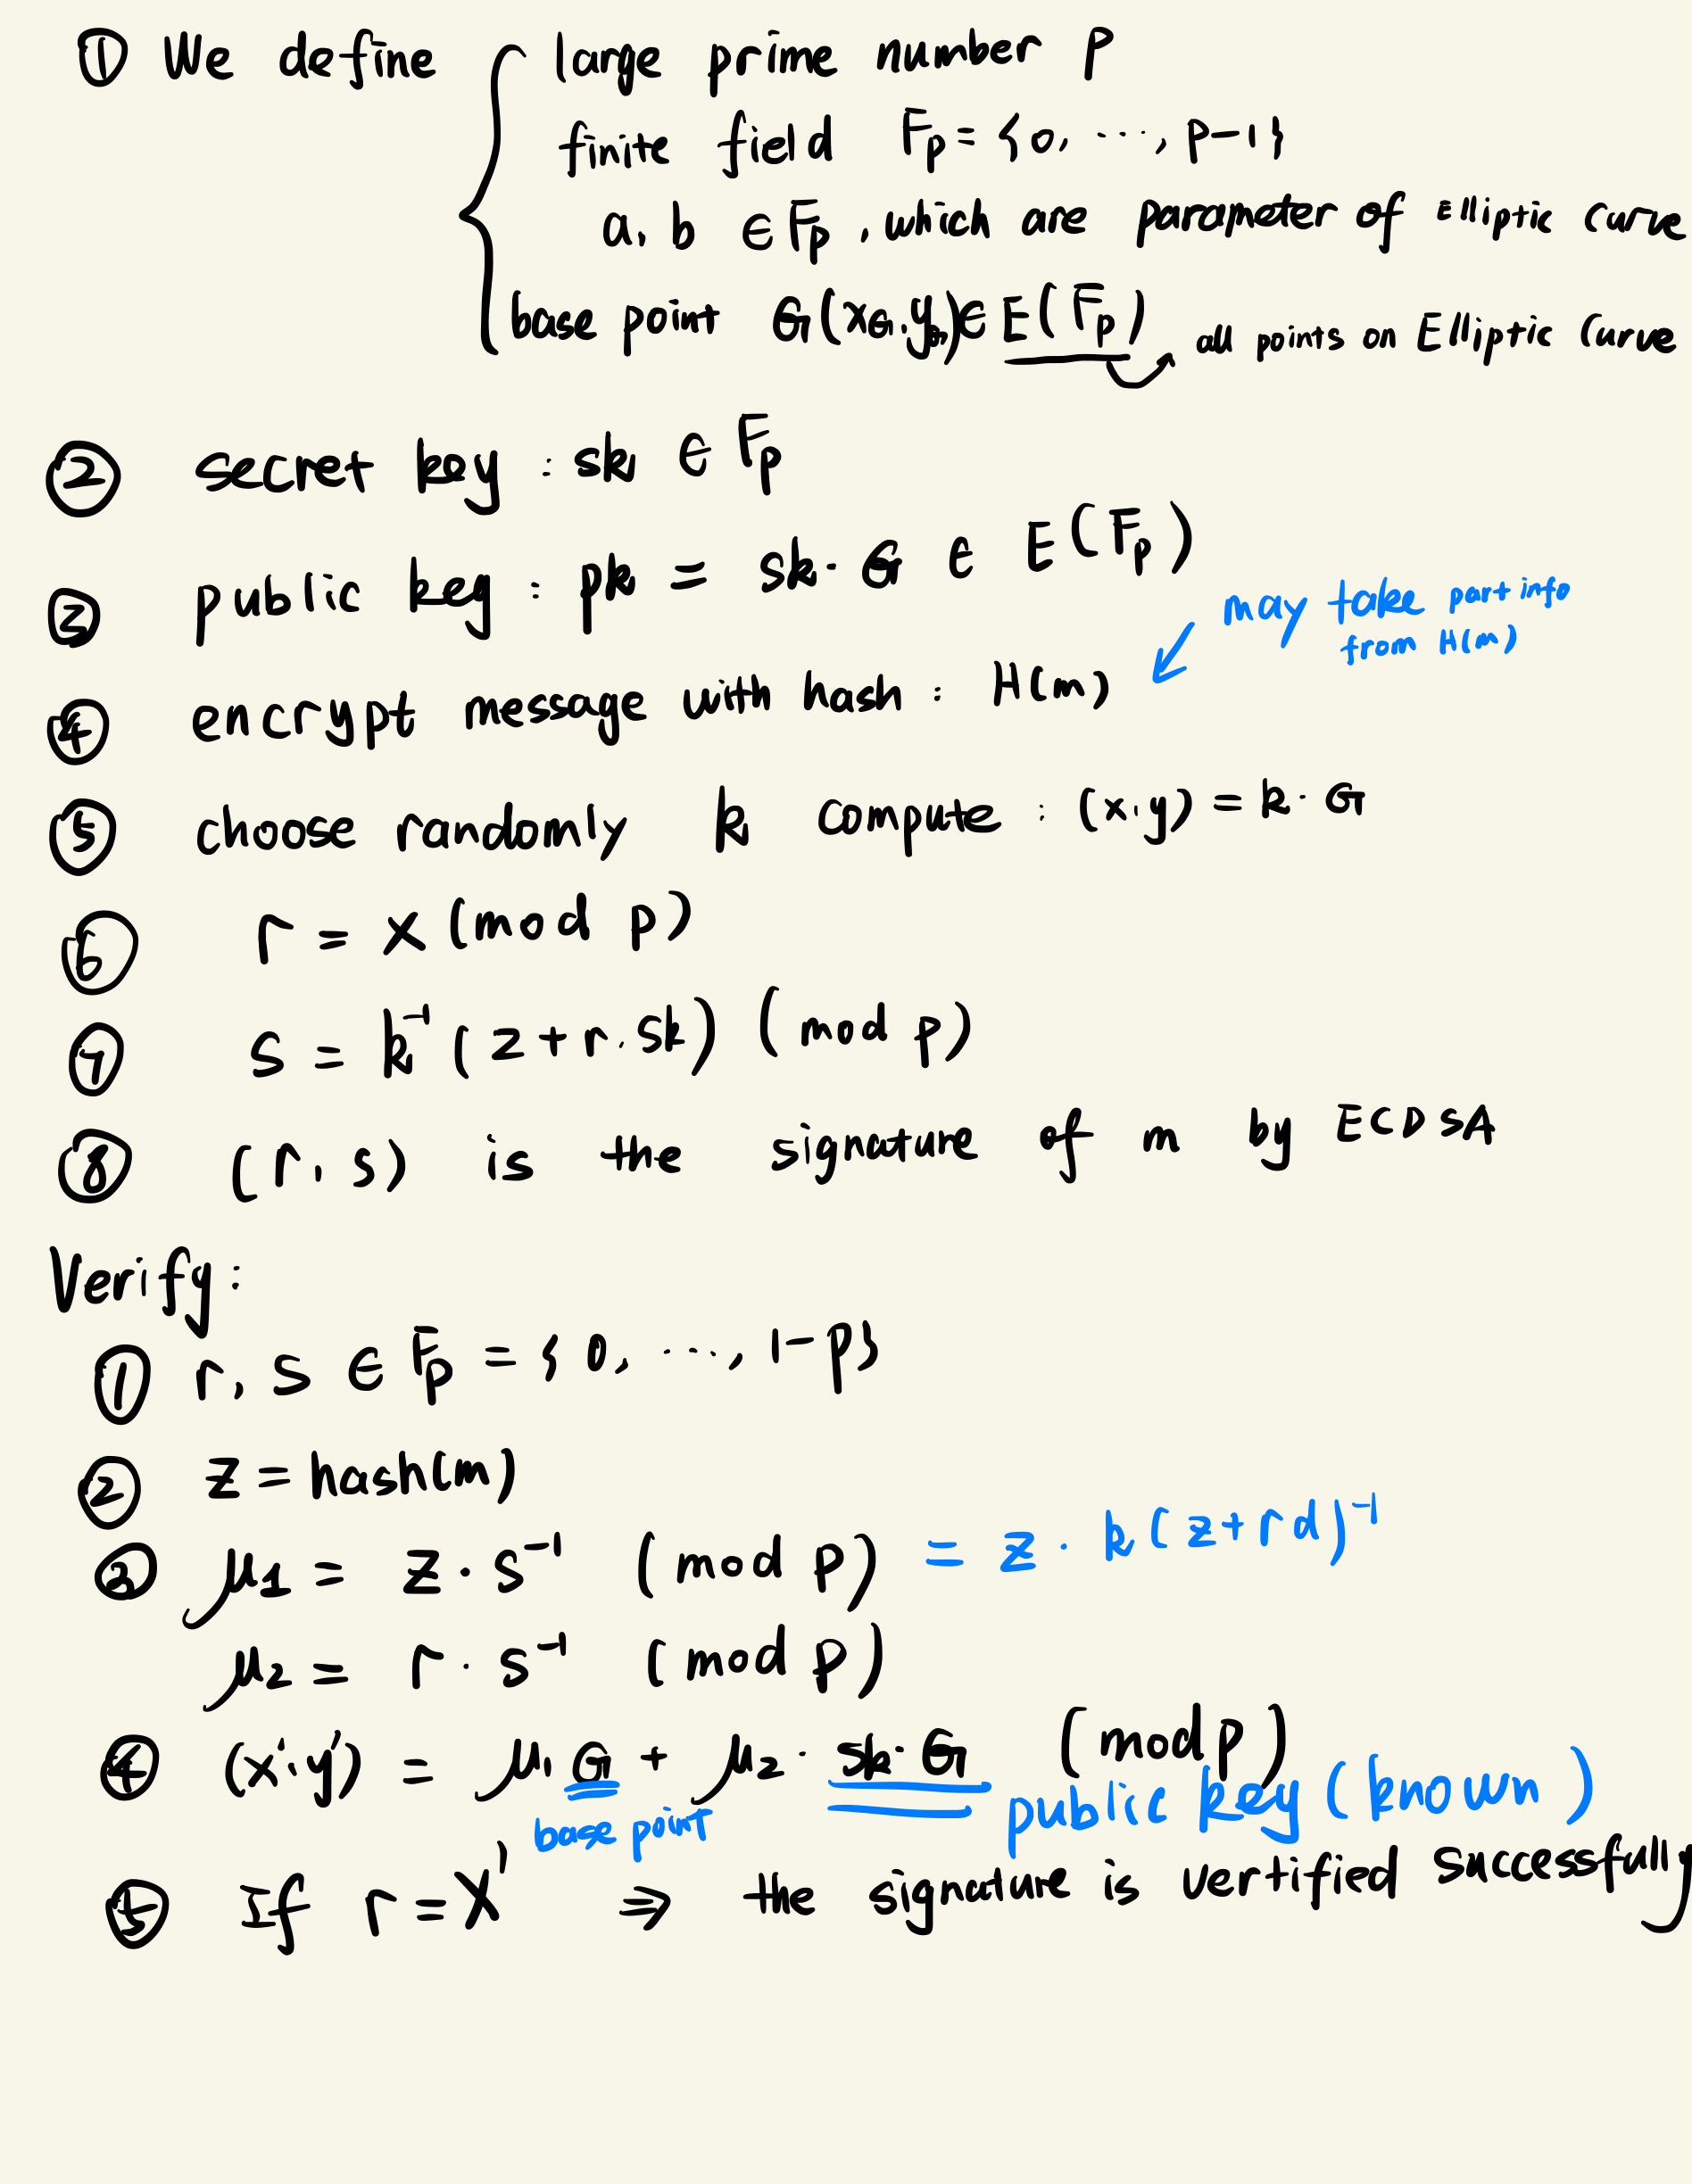 ① We define { large prime number p
finite field Fp = {0, ..., p-1}
a, b ∈ Fp, which are parameter of Elliptic Curve
base point G(xG, yG) ∈ E(Fp) all points on Elliptic Curve
② secret key : sk ∈ Fp
③ public key : pk = sk · G ∈ E(Fp)
may take part info
from H(m)
④ encrypt message with hash : H(m)
⑤ choose randomly k compute : (x,y) = k · G
⑥ r = x (mod p)
⑦ s = k⁻¹ (z + r · sk) (mod p)
⑧ (r, s) is the signature of m by ECDSA
Verify:
① r, s ∈ Fp = {0, ..., 1-p}
② z = hash(m)
③ μ1 = z · s⁻¹ (mod p) = z · k(z+rd)⁻¹
μ2 = r · s⁻¹ (mod p)
④ (x',y') = μ1 G + μ2 · sk · G (mod p)
base point public key (known)
⑤ If r = x' ⇒ the signature is vertified successfully